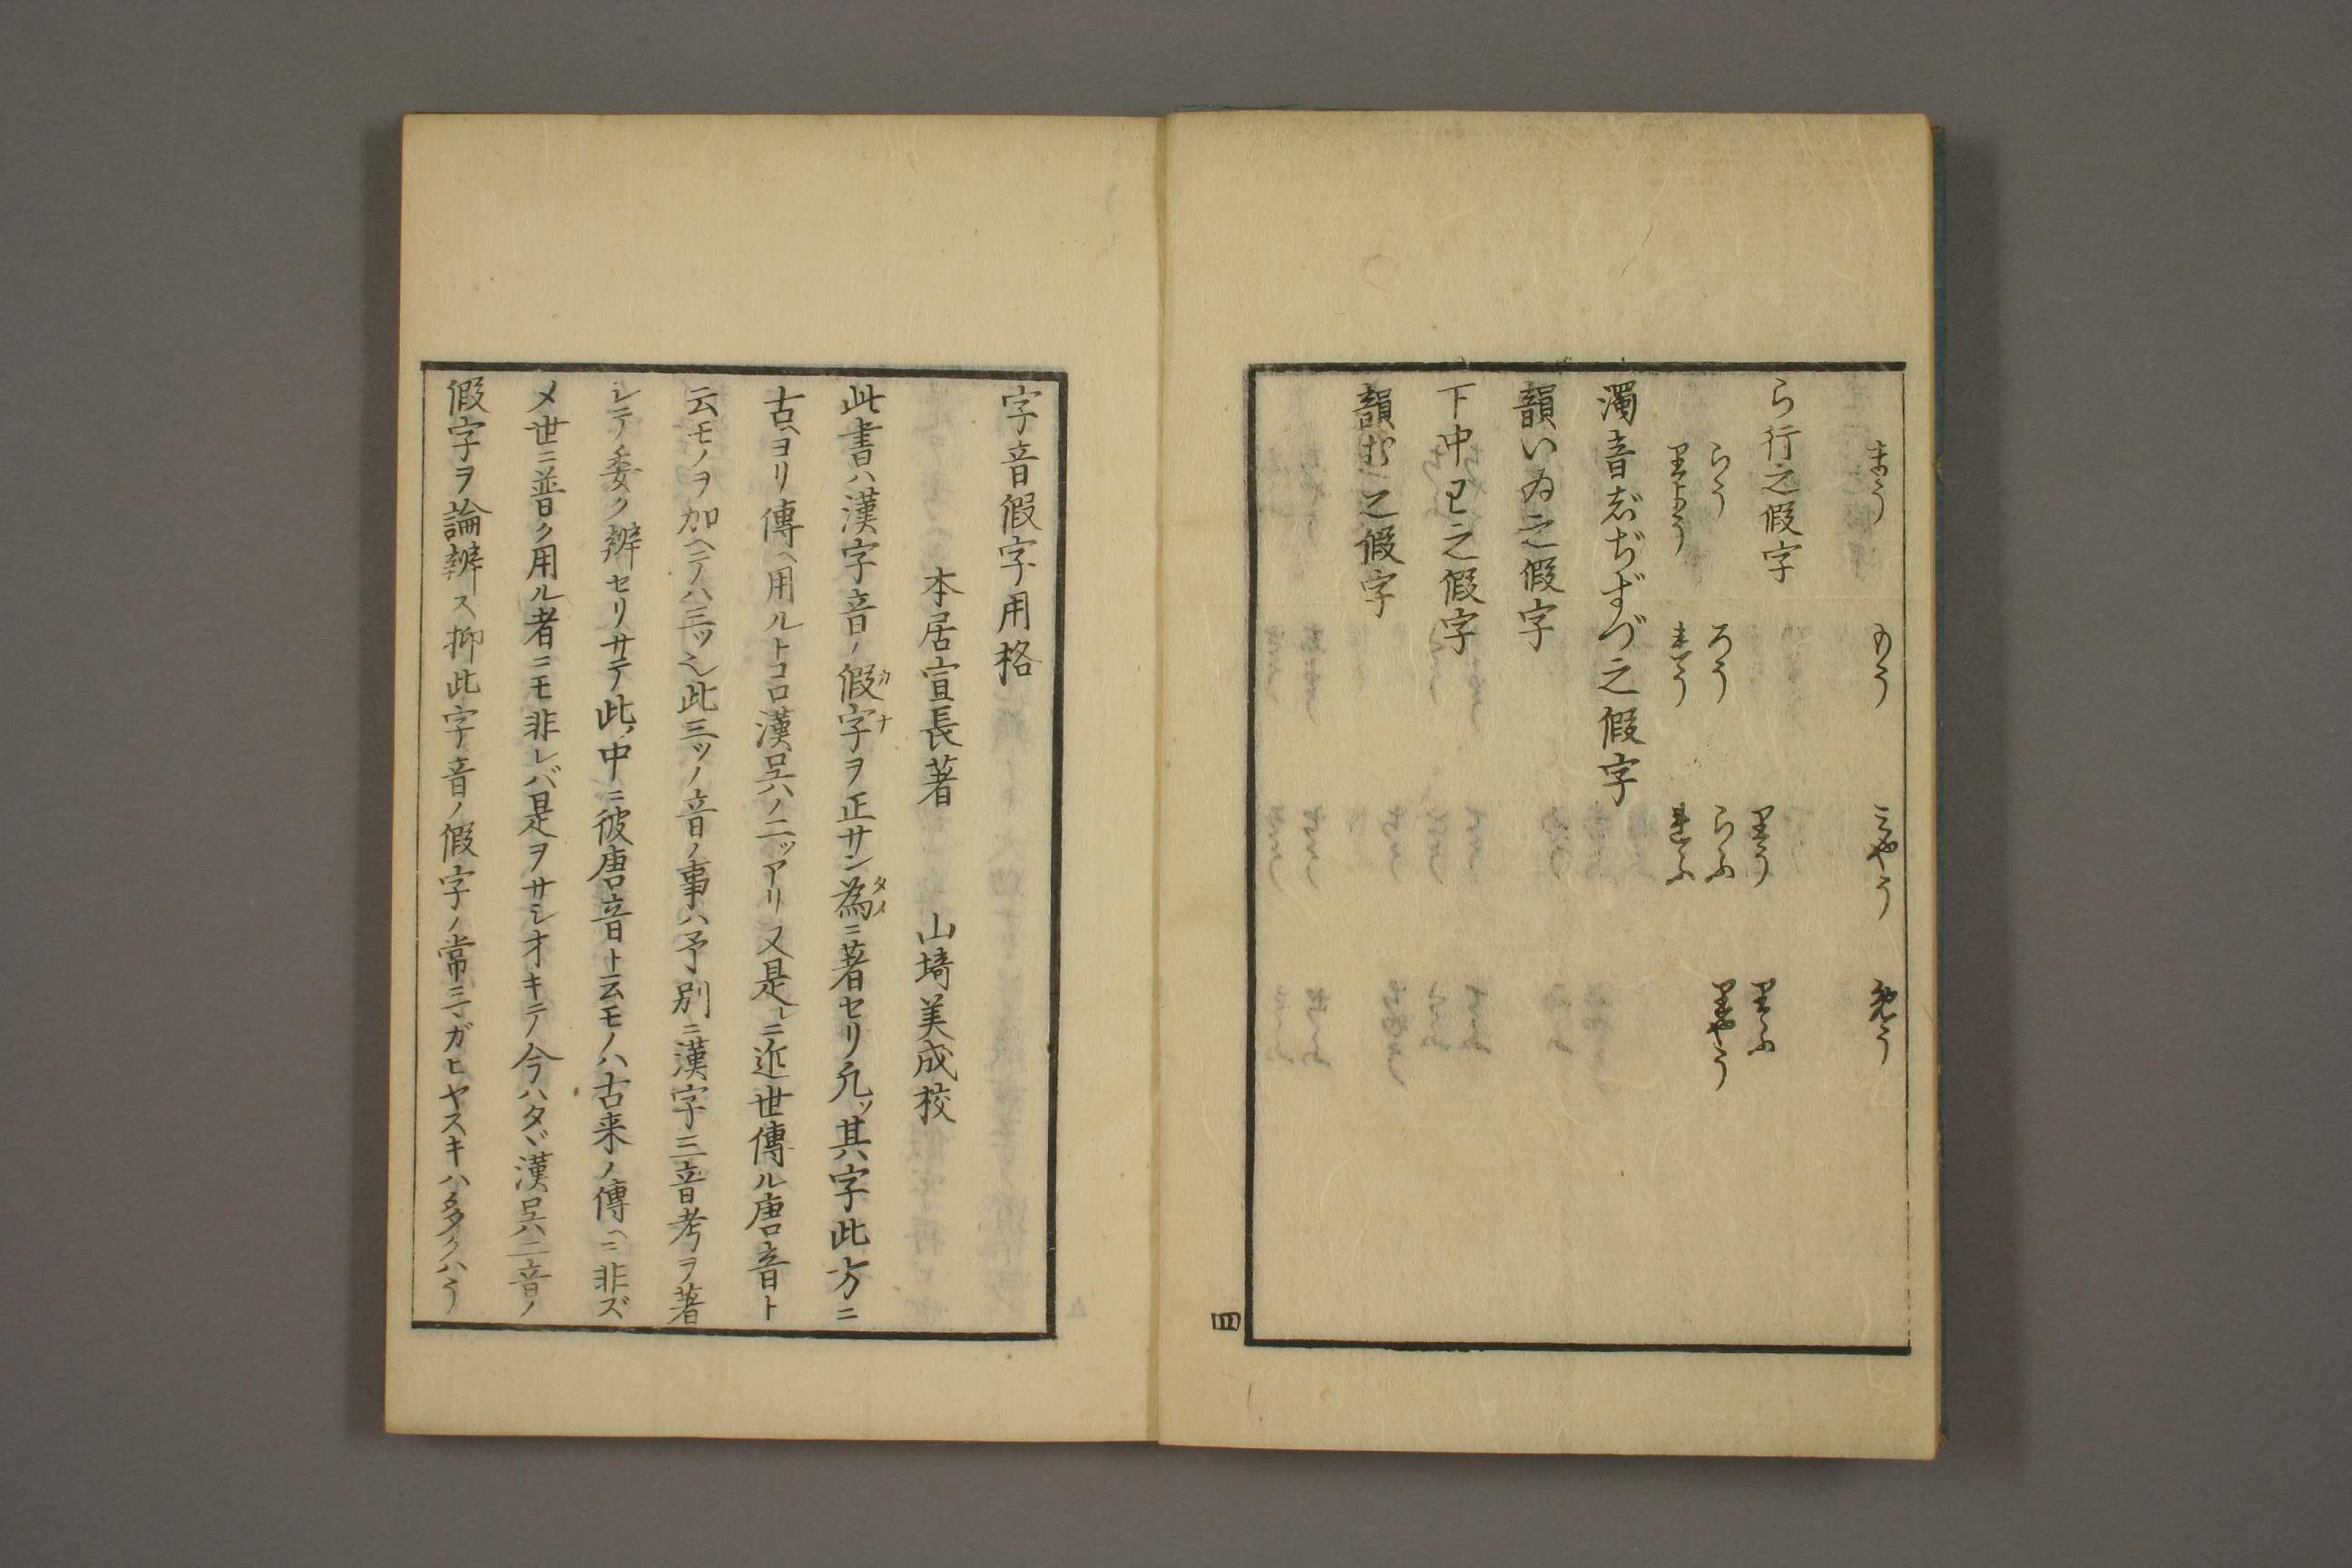 まう　もう　みやう　めう
ら行之假字　りう　りふ
らう　ろう　らふ　りやう
りよう　れう　れふ
濁音じぢずづ之假字
韻いゐ之假字
下中
之假字
韻む之假字
四
字音假字用格
本居宣長著　山﨑美成校
此書ハ漢字音ノ假字ヲ正サン為ニ著セリ凡ッ其字此方ニ
カナ
タメ
古ヘヨリ傳ヘ用ルトコロ漢呉ノ二ッアリ又是レニ近世傳ル唐音ト
云モノヲ加ヘテハ三ッ也此三ッノ音ノ事ハ予別ニ漢字三音考ヲ著
シテノ委ク辨セリサテ此ノ中ニ彼唐音ト云モノハ古来ノ傳ヘニ非ズ
メ世ニ普ク用ル者ニモ非レバ是ヲサシオキテ今ハタヾ漢呉二音ノ
假字ヲ論辨ス抑此字音ノ假字ノ常ニマガヒヤスキハ多クハう